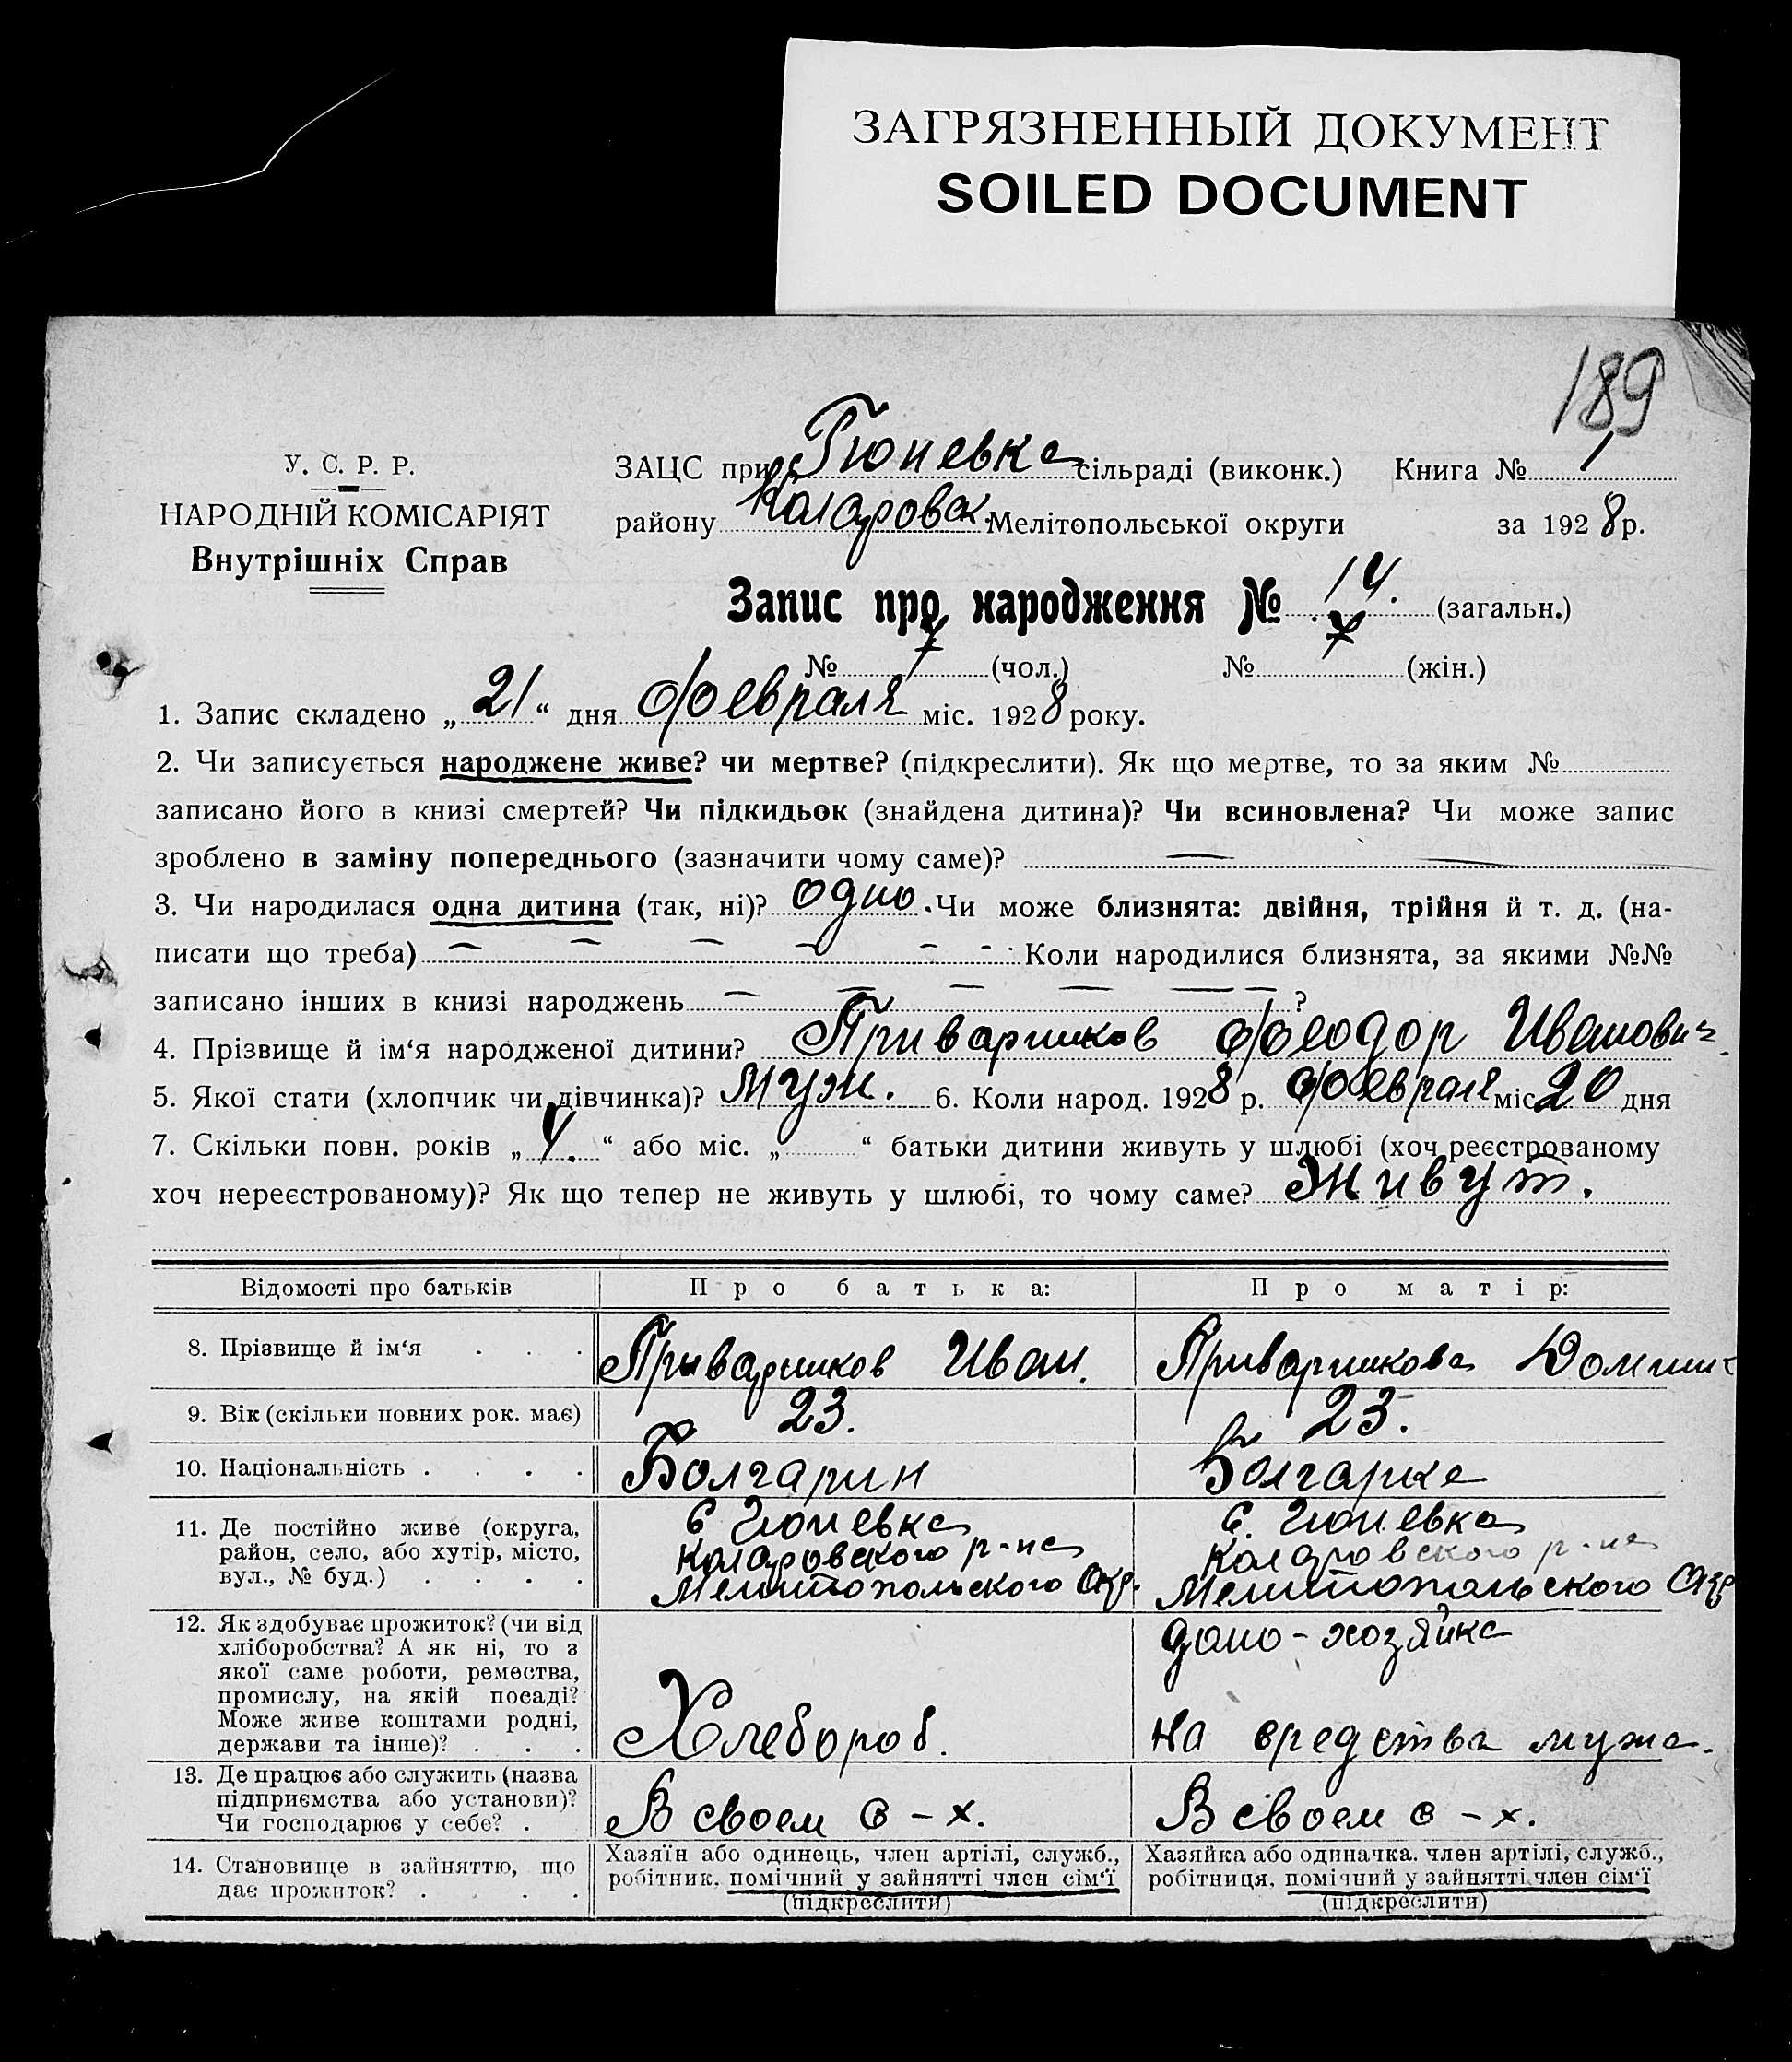 ЗАГРЯЗНЕННЫЙ ДОКУМЕНТ
SOILED DOCUMENT
189
У. С. Р. Р.
НАРОДНІЙ КОМІСАРІЯТ
Внутрішніх Справ
ЗАЦС при Гюневка сільраді (виконк.) Книга № 1
району Коларовск. Мелітопольської округи за 1928 р.
Запис про народження № 14. (загальн.)
№ 7 (чол.) № 7 (жін.)
1. Запис складено „21“ дня февраля міс. 1928 року.
2. Чи записується народжене живе? чи мертве? (підкреслити). Як що мертве, то за яким №
записано його в книзі смертей? Чи підкидьок (знайдена дитина)? Чи всиновлена? Чи може запис
зроблено в заміну попереднього (зазначити чому саме)? —
3. Чи народилася одна дитина (так, ні)? одно. Чи може близнята: двійня, трійня й т. д. (на-
писати що треба) — — — — - - Коли народилися близнята, за якими №№
записано інших в книзі народжень — — — — — — ?
4. Прізвище й ім‘я народженої дитини? Приваринков Феодор Иванович
5. Якої стати (хлопчик чи дівчинка)? Муж. 6. Коли народ. 1928 р. февраля міс 20 дня
7. Скільки повн. років „4.“ або міс. „ “ батьки дитини живуть у шлюбі (хоч реєстрованому
хоч нереєстрованому)? Як що тепер не живуть у шлюбі, то чому саме? Живут.
Відомості про батьків Про батька: Про матір:
8. Прізвище й ім‘я . . . Приваринков Иван. Приваринкова
9. Вік (скільки повних рок. має) 23. 23.
10. Національність . . . . Болгарин Болгарка
11. Де постійно живе (округа, с Гюневка с. Гюневка
район, село, або хутір, місто, Коларовского р-на Коларовского р-на
вул., № буд.) . . . . Мелитопольского Окр. Мелитопольского Окр
12. Як здобуває прожиток? (чи від домо-хозяйка
хліборобства? А як ні, то з
якої саме роботи, ремества,
промислу, на якій посаді?
Може живе коштами родні,
держави та інше)? . . . Хлебороб. на средства мужа.
13. Де працює або служить (назва
підприємства або установи)?
Чи господарює у себе? . В своем с-х. В своем с-х.
14. Становище в зайняттю, що Хазяїн або одинець, член артілі, служб., Хазяйка або одиначка, член артілі, служб.,
дає прожиток? . . . . робітник, помічний у зайнятті член сім‘ї робітниця, помічний у зайнятті член сім‘ї
(підкреслити) (підкреслити)